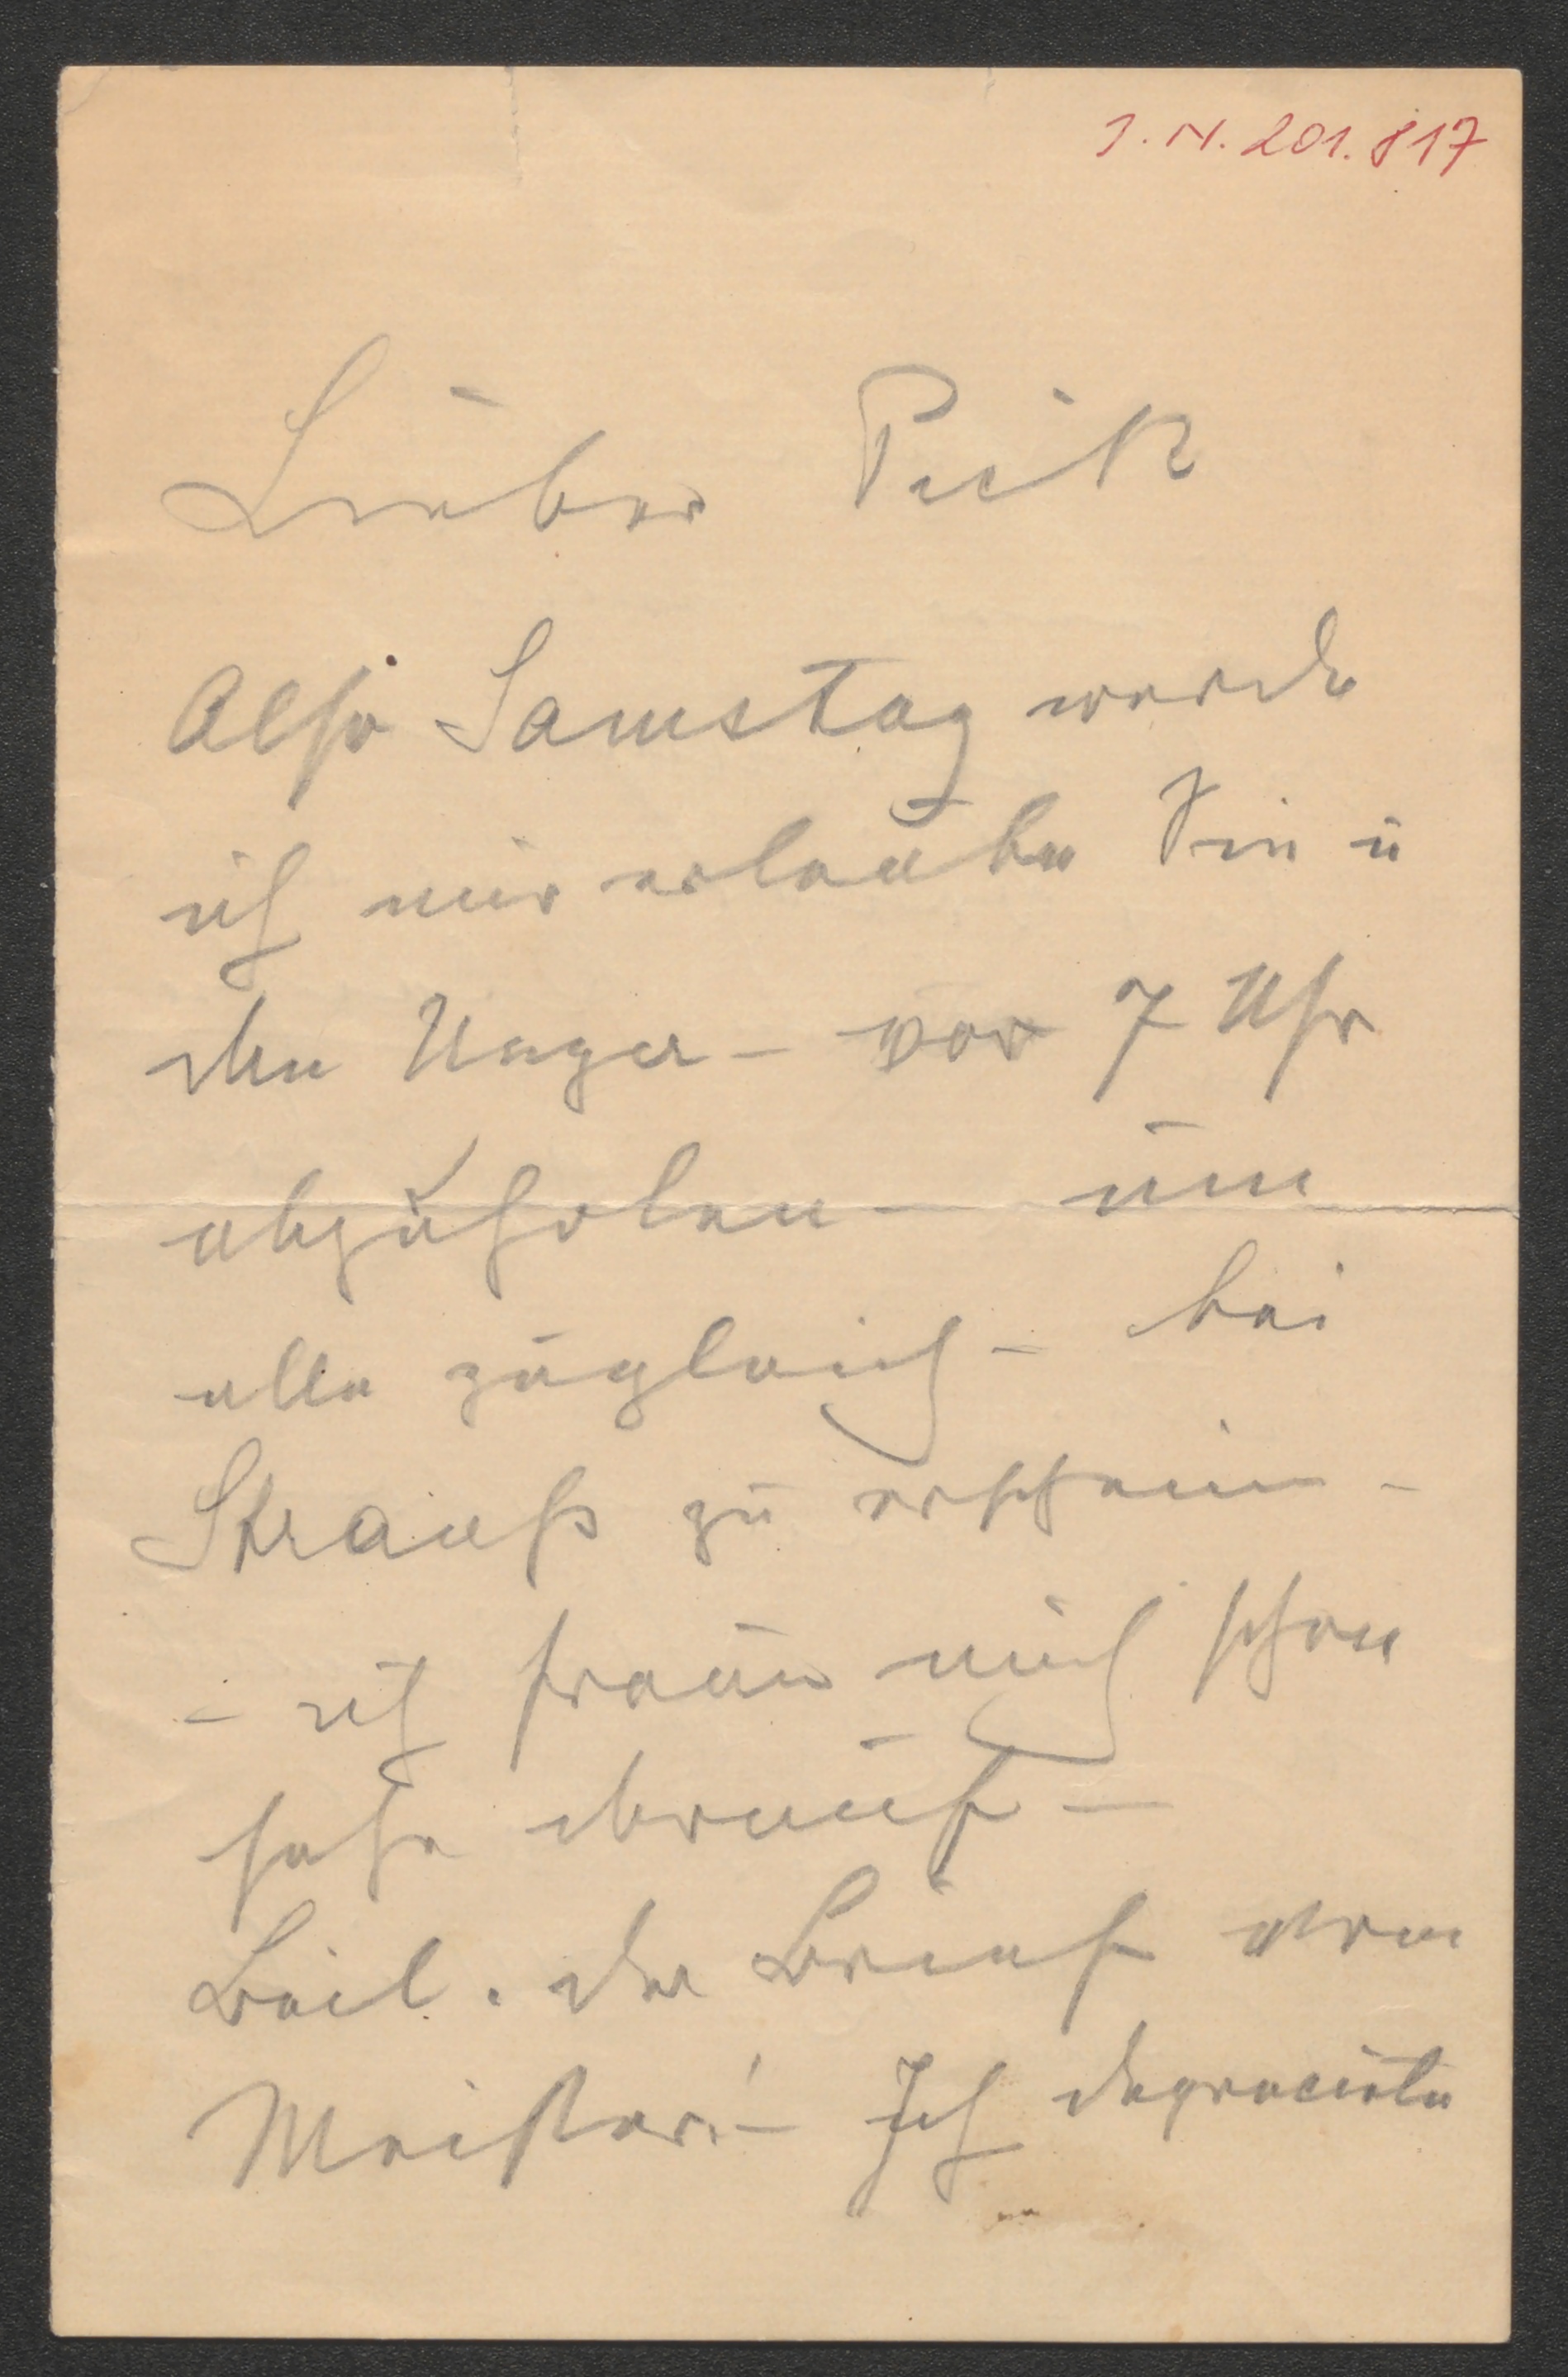 I. N. 201.817
Lieber Pick
Also Samstag werde
ich mir erlauben Sie u
den Unger – vor 7 Uhr
abzuholen – um
alle zugleich – bei
Strauß zu erschein –
– ich freue mich schon
sehr darauf –
Beil. der Brief vom
Meister! – Ich